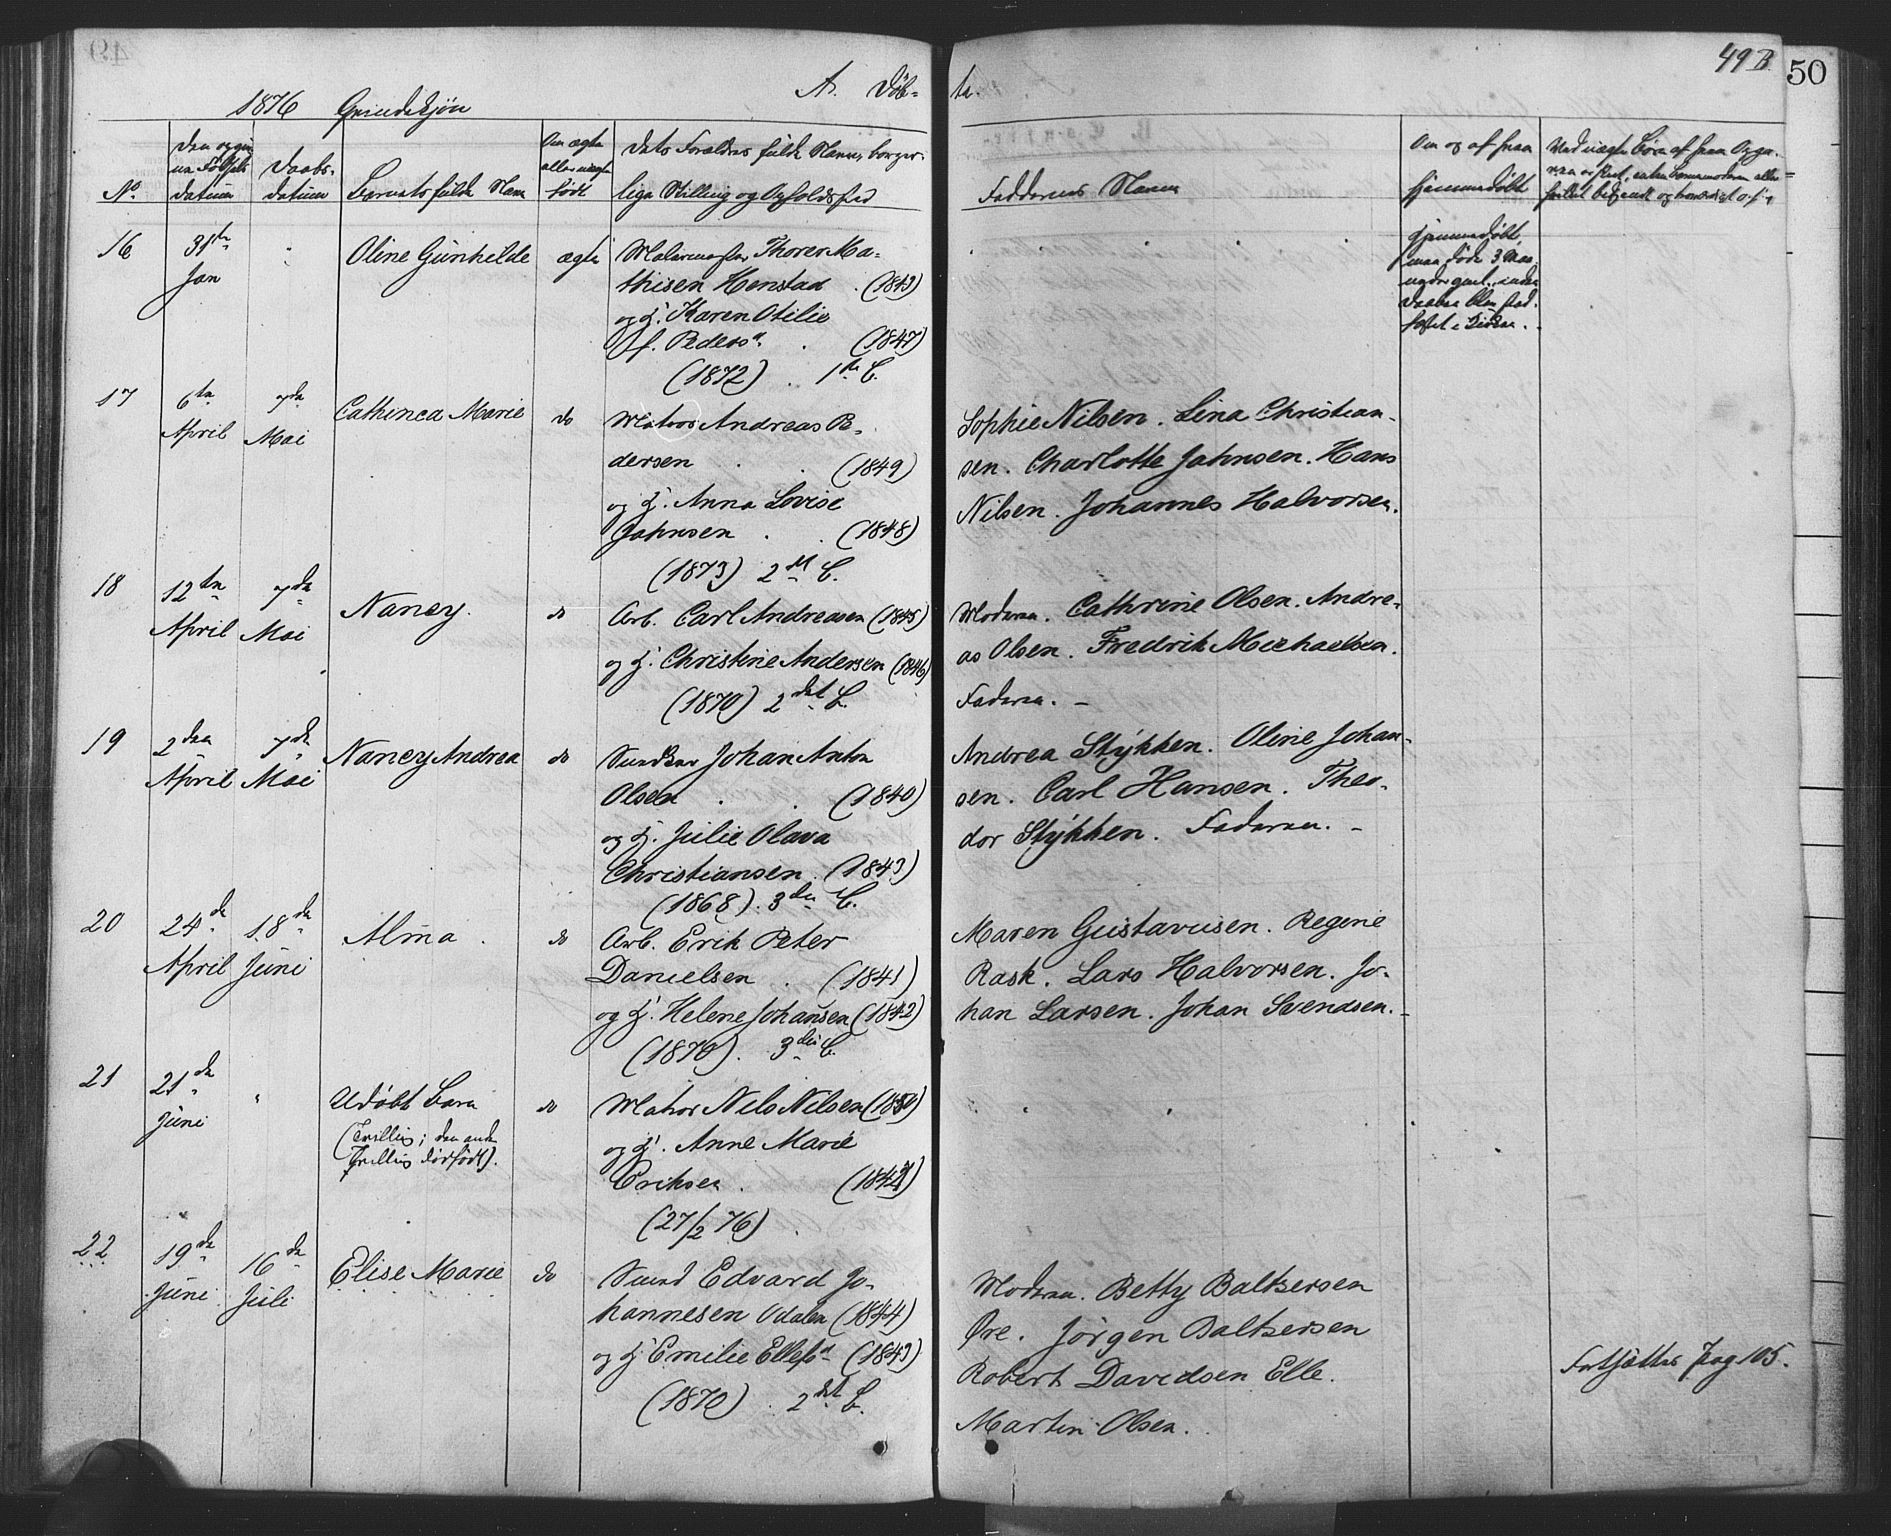 49 B
50
A. Döb-
te.
1876 Grindskjön
No
Den og givne Födsels datum
Daabs-datum
Barnets fulde Navn
Om ægte eller uægte födt
dets Forældres fulde Navne, borger-
lige Stilling og Opholdssted
Faddernes Navne
Om og af hvem
hjemmedöbt
16
31te
Jan
"
Oline Gunhilde
ægte
Malermester Thorer Ma-
thisen Henstad . (1843)
og H. Karen Otilie
f. Peders n. . (1847)
(1872) . 1te B.
Hjemmedöbt,
men döde 3 Mdr
17
6te
April
7de
Mai
Cathinca Marie
do
Matros Andreas Pe-
dersen . . (1849)
og H. Anna Lovise
Jahnsen . . (1848)
(1873) 2det B.
Sophie Nilsen. Lina Christian-
sen. Charlotte Jahnsen. Hans
Nilsen. Johannes Halvorsen.
18
12te
April
7de
Mai
Nancy.
do
Arb. Carl Andreasen (1845)
og H. Christine Andersen (1846)
(1870) 2det B.
Moderen. Cathrine Olsen. Andre-
as Olsen. Fredrik Michaelsen.
Faderen. -
19
2den
April
7de
Mai
Nancy Andrea
do
Snedker Johan Anton
Olsen . . (1840)
og H. Julie Olava
Christiansen. (1843)
(1868). 3die B.
Andrea Stykken. Oline Johan-
sen. Carl Hansen. Theo-
dor Stykken. Faderen. -
20
24de
April
18de
Juni
Alma .
do
Arb. Erik Peter
Danielsen . (1841)
og H. Helene Johansen (1842)
(1870). 3die B.
Maren Gustavusen. Regine
Rask. Lars Halvorsen. Jo-
han Larsen. Johan Svendsen. -
21
21de
Juni
"
Udöbt Barn
(Tvilling; den anden
Tvilling dödfödt).
do
Matros Nils Nilsen (1850)
og H. Anne Marie
Eriksen .
(27/2 76) .
22
19de
Juni
16de
Juli
Elise Marie
do
Smed Edvard Jo-
hannesen Odalen (1844)
og H Emilie Ellefsn (1843)
(1870) . 2det B.
Moderen. Betty Baltzersen
Öre. Jörgen Baltzersen
Robert Davidsen Elle.
Martin Olsen.
Fortsættes pag 105.